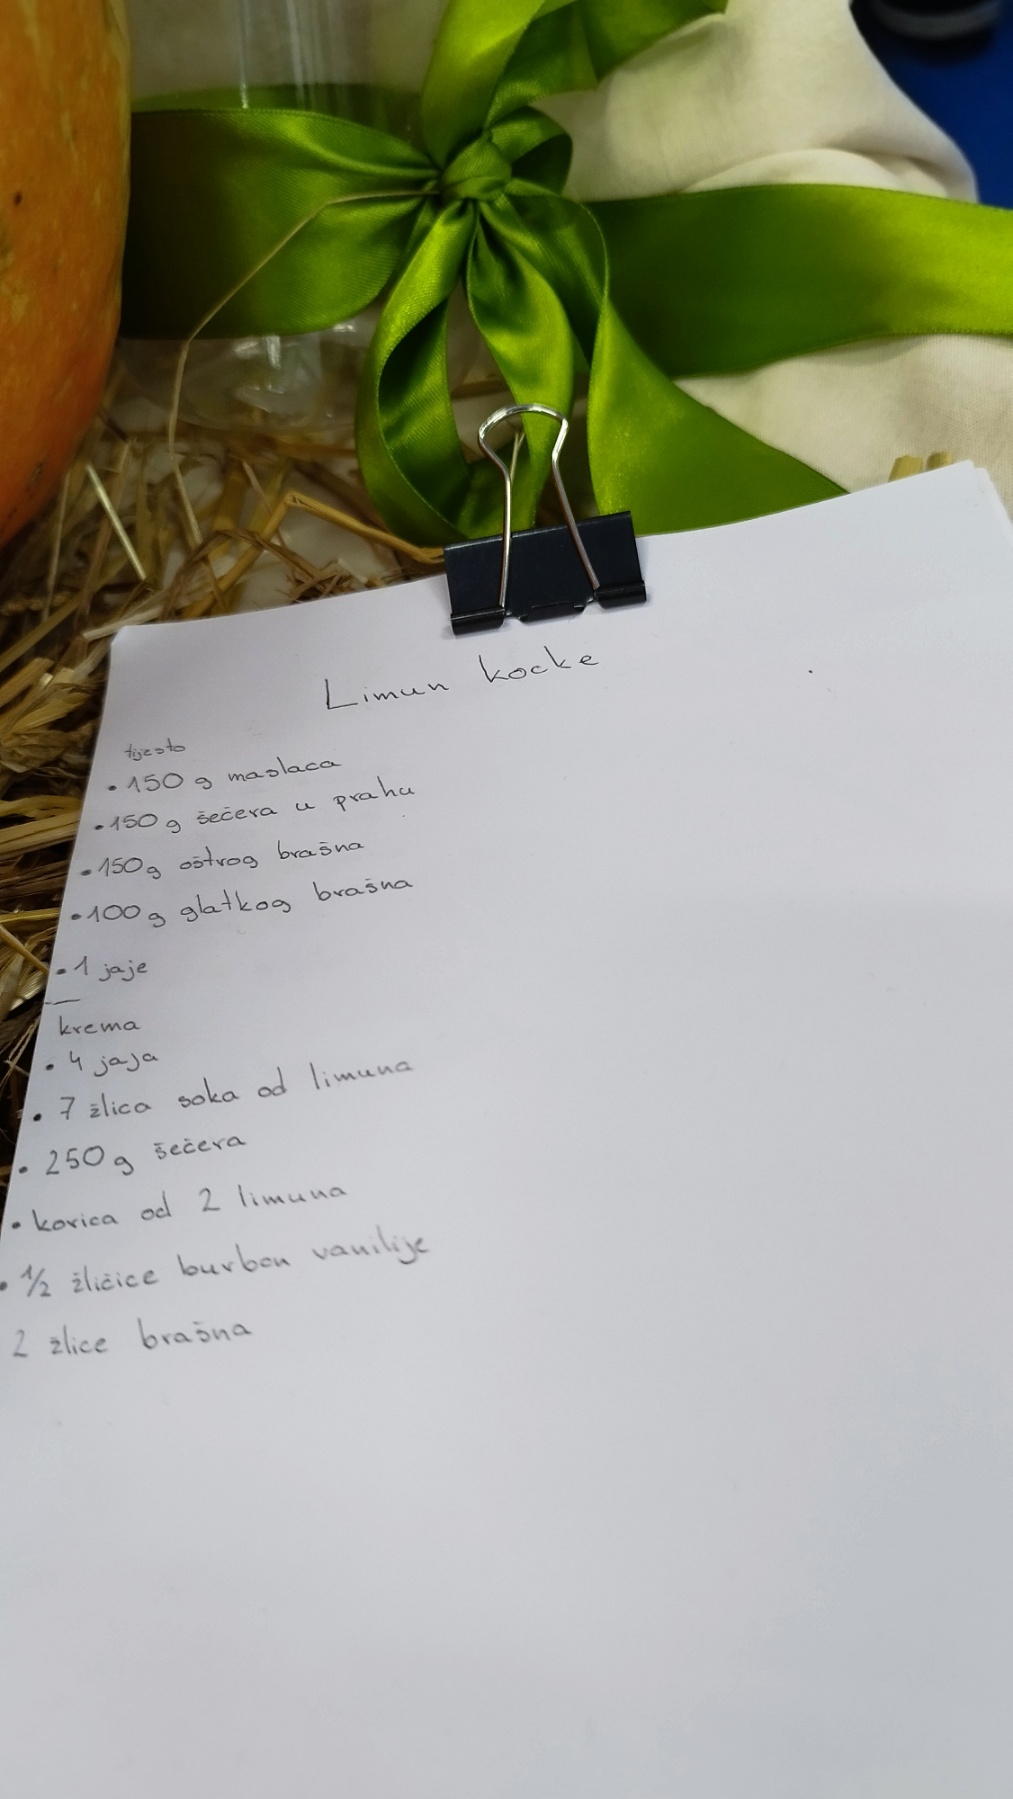 Limun kocke
tijesto
• 150 g maslaca
• 150 g šećera u prahu
• 150g oštrog brašna
• 100 g glatkog brašna
• 1 jaje
krema
• 4 jaja
• 7 žlica soka od limuna
• 250 g šećera
• korica od 2 limuna
• 1/2 žličice burbon vanilije
2 žlice brašna